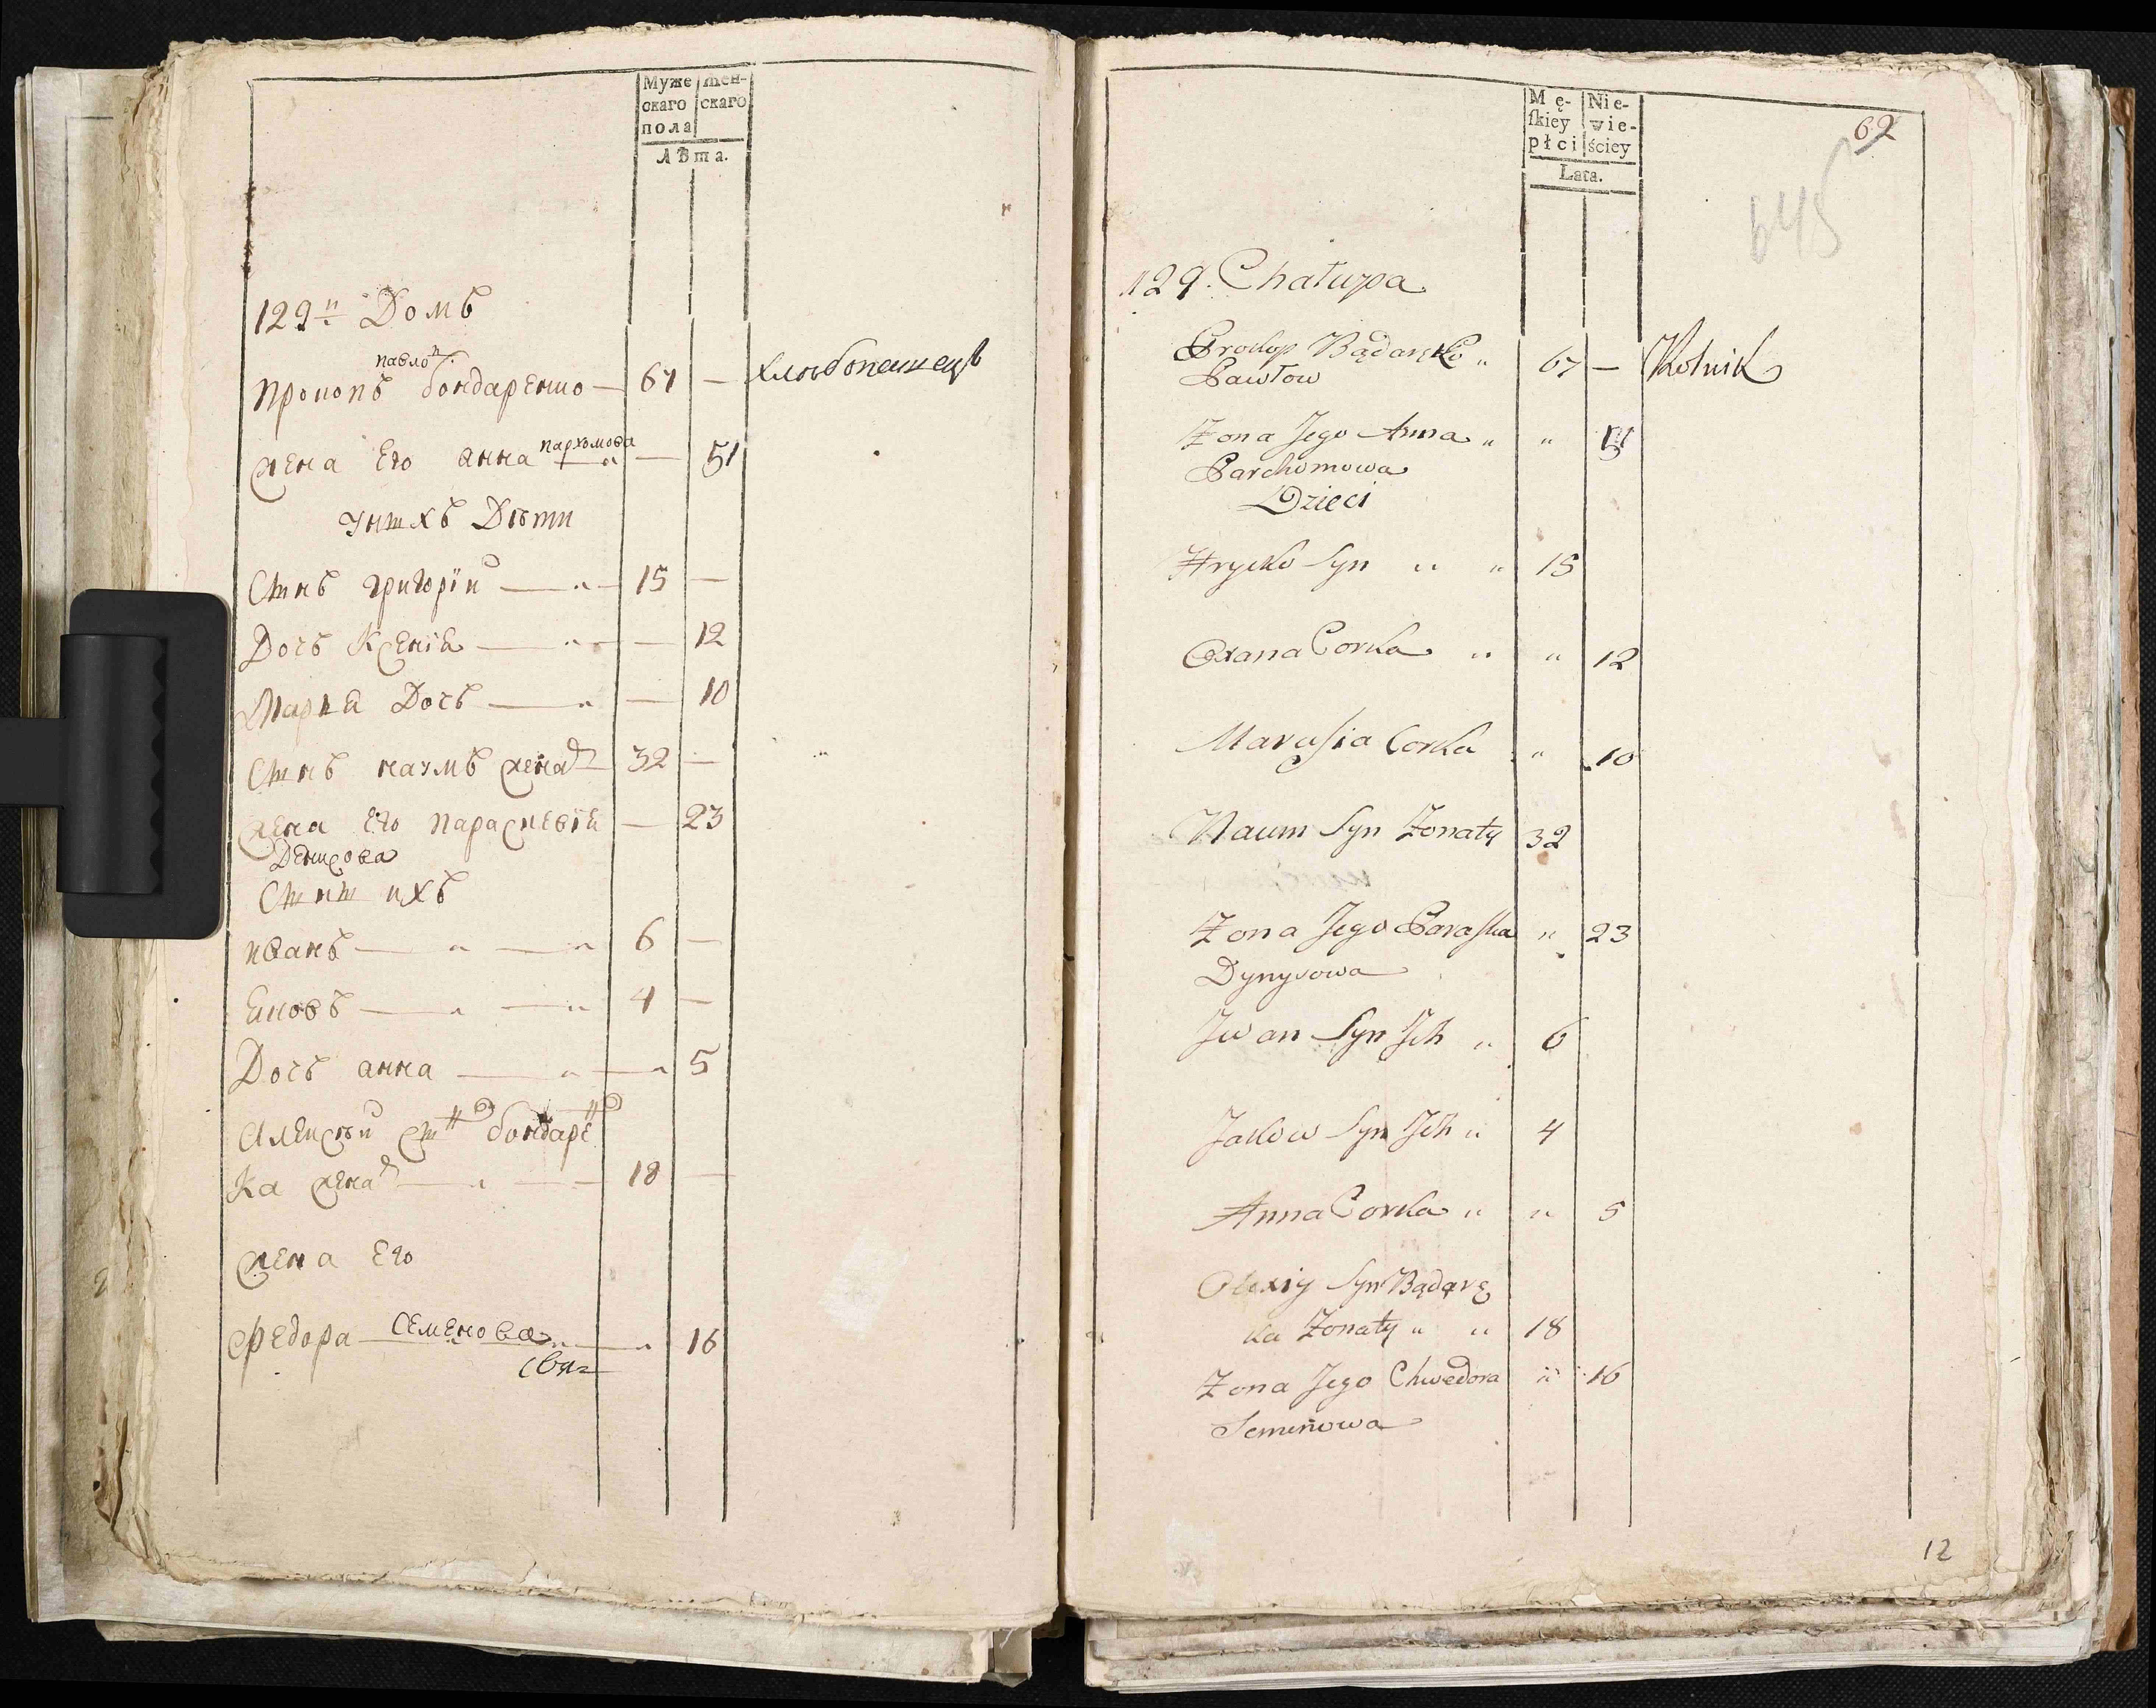 Муже
скаго
пола
Жен-
скаго
Лѣта.
129й Домъ
Павло в
Прокопъ бондаренко — 67 — хлѣбопашецъ
Пархомова
жена Его анна — 51
У нихъ Дѣти
Сынъ григорїй — 15 —
Дочь Ксенїя — 12
Марья Дочь — 10
Сынъ наумъ женат 32 —
жена Его Параскевїя — 23
Денисова
Сыны ихъ
иванъ — 6 —
Яковъ — 4 —
Дочь анна — 5
Алексѣй сын бондарен
ка женат — 18 —
жена Его
Федора Семенова — 16
Mę-
ſkiey
płci
Nie-
wie-
ściey
Lata.
62
645
129. Chałupa
Prokop Bądaręko „ 67 — Rolnik
Pawłow
Żona Jego Anna „ „ 51
Parchomowa
Dzieci
Hrycko Syn „ „ 15
Oxana Corka „ „ 12
Marusia Corka „ 10
Naum Syn Żonaty 32
Żona Jego Paraska „ 23
Dynysowa
Jwan Syn Jch „ 6
Jakow Syn Jch „ 4
Anna Corka „ „ 5
Olexiy Syn Bądarę
ka Żonaty „ „ 18
Żona Jego Chwedora „ 16
Semenowa
12